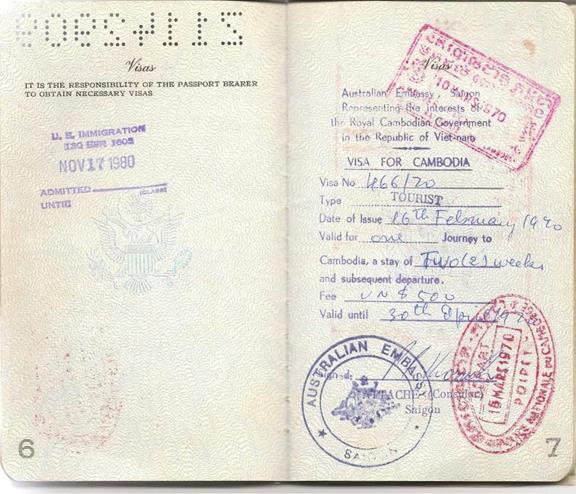 Visas
IT IS THE RESPONSIBILITY OF THE PASSPORT BEARER
TO OBTAIN NECESSARY VISAS
U. S. IMMIGRATION
NOV 17 1980
ADMITTED
(CLASS)
UNTIL
6
Visas
Australian Embassy, Saigon
Representing the interests of
the Royal Cambodian Government
in the Republic of Viet-nam
VISA FOR CAMBODIA
Visa No 466/70
Type TOURIST
Date of Issue 16th February 1970
Valid for one Journey to
Cambodia, a stay of Two (2) weeks
and subsequent departure.
Fee VN $ 500
Valid until 30th April 1970
Signed:
ATTACHE (Consular)
Saigon
AUSTRALIAN EMBASSY
SAIGON
1970
18 MARS 1970
POIPET
7